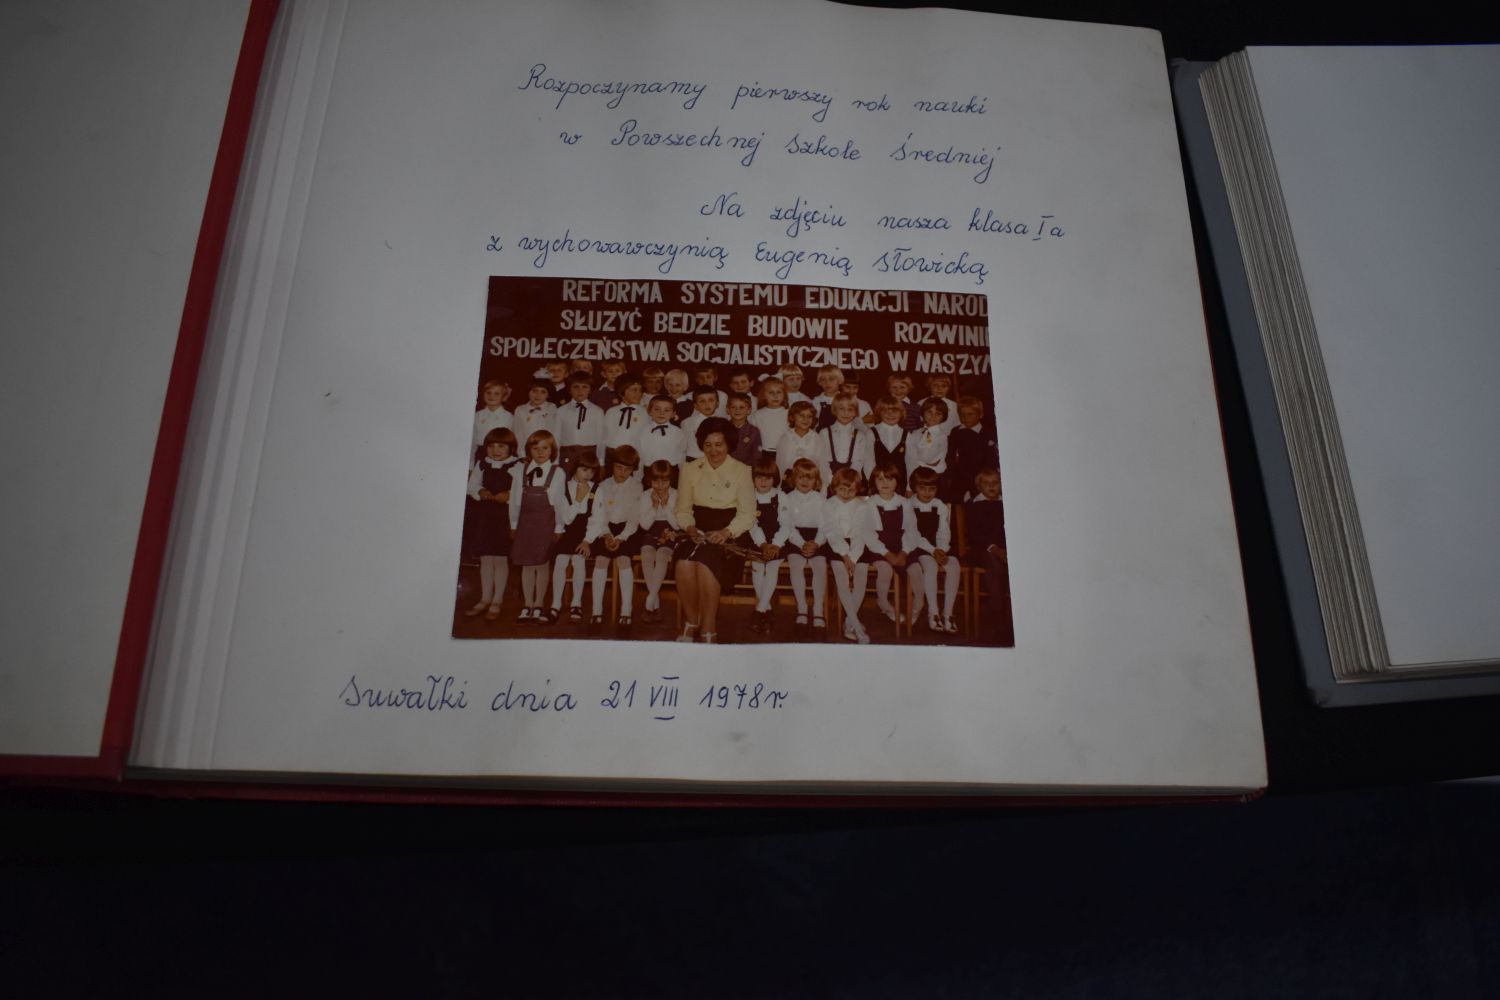 Rozpoczynamy pierwszy rok nauki
w Powszechnej Szkole Średniej
Na zdjęciu nasza klasa Ia
z wychowawczynią Eugenią Słowicką
REFORMA SYSTEMU EDUKACJI NAROD
SŁUZYĆ BEDZIE BUDOWIE ROZWINI
SPOŁECZEŃSTWA SOCJALISTYCZNEGO W NASZY
Suwałki dnia 21 VIII 1978r.